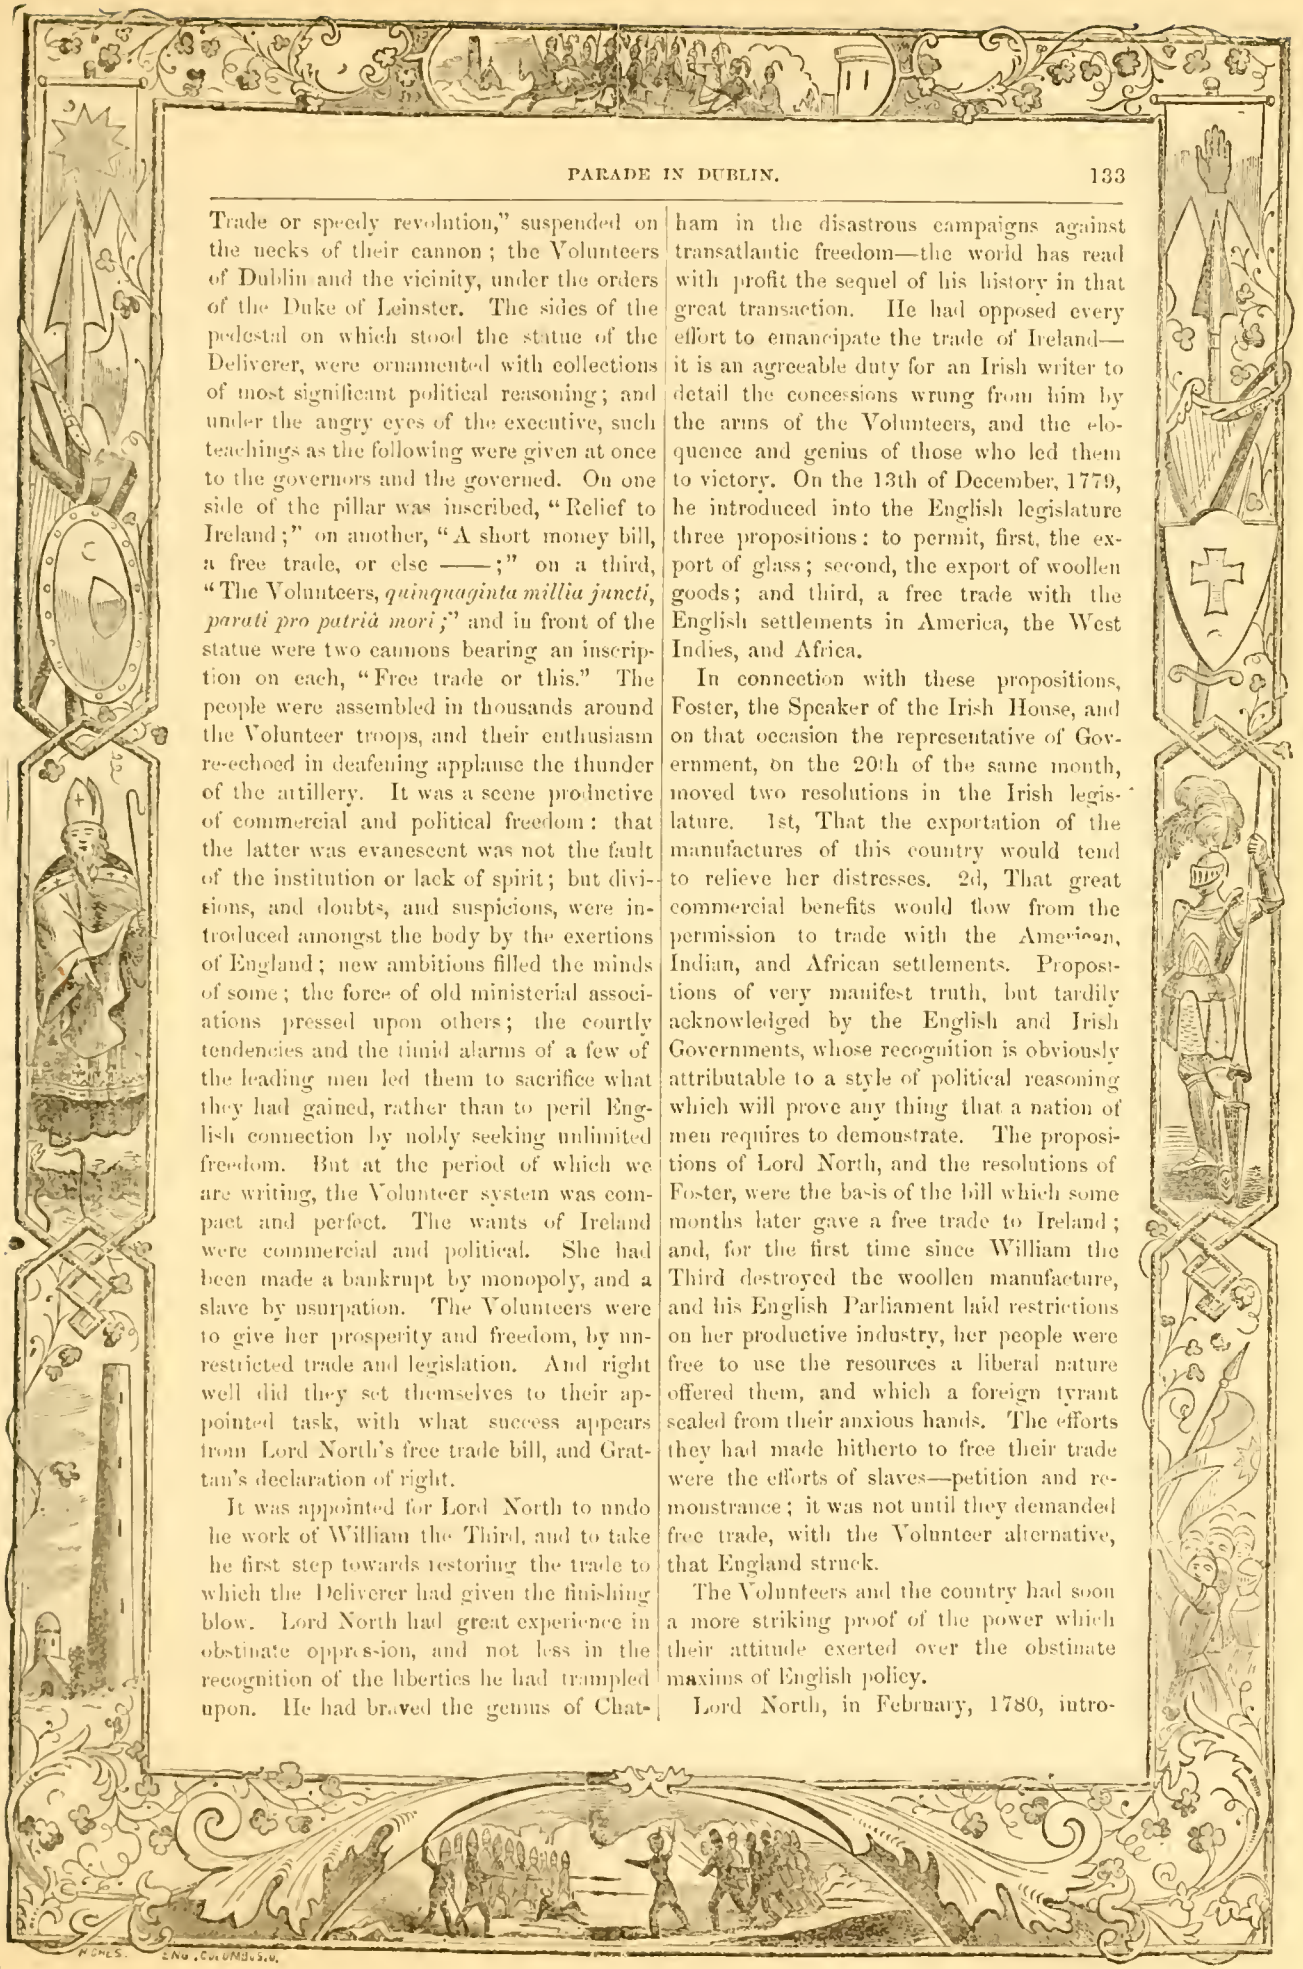 PARADE IN DUBLIN.
133
Trade or speedy revolution,” suspended on
the necks of their cannon ; the Volunteers
of Dublin and the vicinity, under the orders
of the Duke of Leinster. The sides of the
pedestal on which stood the statue of the
Deliverer, were ornamented with collections
of most significant political reasoning ; and
under the angry eyes of the executive, such
teachings as the following were given at once
to the governors and the governed. On one
side of the pillar was inscribed, “ Relief to
Ireland ;” on another, “ A short money bill,
a free trade, or else —— ;” on a third,
“ The Volunteers, quinquaginta millia juncti,
parati pro patriâ mori ;” and in front of the
statue were two cannons bearing an inscrip-
tion on each, “ Free trade or this.” The
people were assembled in thousands around
the Volunteer troops, and their enthusiasm
re-echoed in deafening applause the thunder
of the artillery. It was a scene productive
of commercial and political freedom : that
the latter was evanescent was not the fault
of the institution or lack of spirit ; but divi-
sions, and doubts, and suspicions, were in-
troduced amongst the body by the exertions
of England ; new ambitions filled the minds
of some ; the force of old ministerial associ-
ations pressed upon others ; the courtly
tendencies and the timid alarms of a few of
the leading men led them to sacrifice what
they had gained, rather than to peril Eng-
lish connection by nobly seeking unlimited
freedom. But at the period of which we
are writing, the Volunteer system was com-
pact and perfect. The wants of Ireland
were commercial and political. She had
been made a bankrupt by monopoly, and a
slave by usurpation. The Volunteers were
to give her prosperity and freedom, by un-
restricted trade and legislation. And right
well did they set themselves to their ap-
pointed task, with what success appears
from Lord North’s free trade bill, and Grat-
tan’s declaration of right.
It was appointed for Lord North to undo
he work of William the Third, and to take
he first step towards restoring the trade to
which the Deliverer had given the finishing
blow. Lord North had great experience in
obstinate oppression, and not less in the
recognition of the liberties he had trampled
upon. He had braved the genius of Chat-
ham in the disastrous campaigns against
transatlantic freedom—the world has read
with profit the sequel of his history in that
great transaction. He had opposed every
effort to emancipate the trade of Ireland—
it is an agreeable duty for an Irish writer to
detail the concessions wrung from him by
the arms of the Volunteers, and the elo-
quence and genius of those who led them
to victory. On the 13th of December, 1779,
he introduced into the English legislature
three propositions : to permit, first, the ex-
port of glass ; second, the export of woollen
goods ; and third, a free trade with the
English settlements in America, the West
Indies, and Africa.
In connection with these propositions,
Foster, the Speaker of the Irish House, and
on that occasion the representative of Gov-
ernment, on the 20th of the same month,
moved two resolutions in the Irish legis-
lature. 1st, That the exportation of the
manufactures of this country would tend
to relieve her distresses. 2d, That great
commercial benefits would flow from the
permission to trade with the American,
Indian, and African settlements. Proposi-
tions of very manifest truth, but tardily
acknowledged by the English and Irish
Governments, whose recognition is obviously
attributable to a style of political reasoning
which will prove any thing that a nation of
men requires to demonstrate. The proposi-
tions of Lord North, and the resolutions of
Foster, were the basis of the bill which some
months later gave a free trade to Ireland ;
and, for the first time since William the
Third destroyed the woollen manufacture,
and his English Parliament laid restrictions
on her productive industry, her people were
free to use the resources a liberal nature
offered them, and which a foreign tyrant
sealed from their anxious hands. The efforts
they had made hitherto to free their trade
were the efforts of slaves—petition and re-
monstrance ; it was not until they demanded
free trade, with the Volunteer alternative,
that England struck.
The Volunteers and the country had soon
a more striking proof of the power which
their attitude exerted over the obstinate
maxims of English policy.
Lord North, in February, 1780, intro-
ENG. COLUMBUS.O.